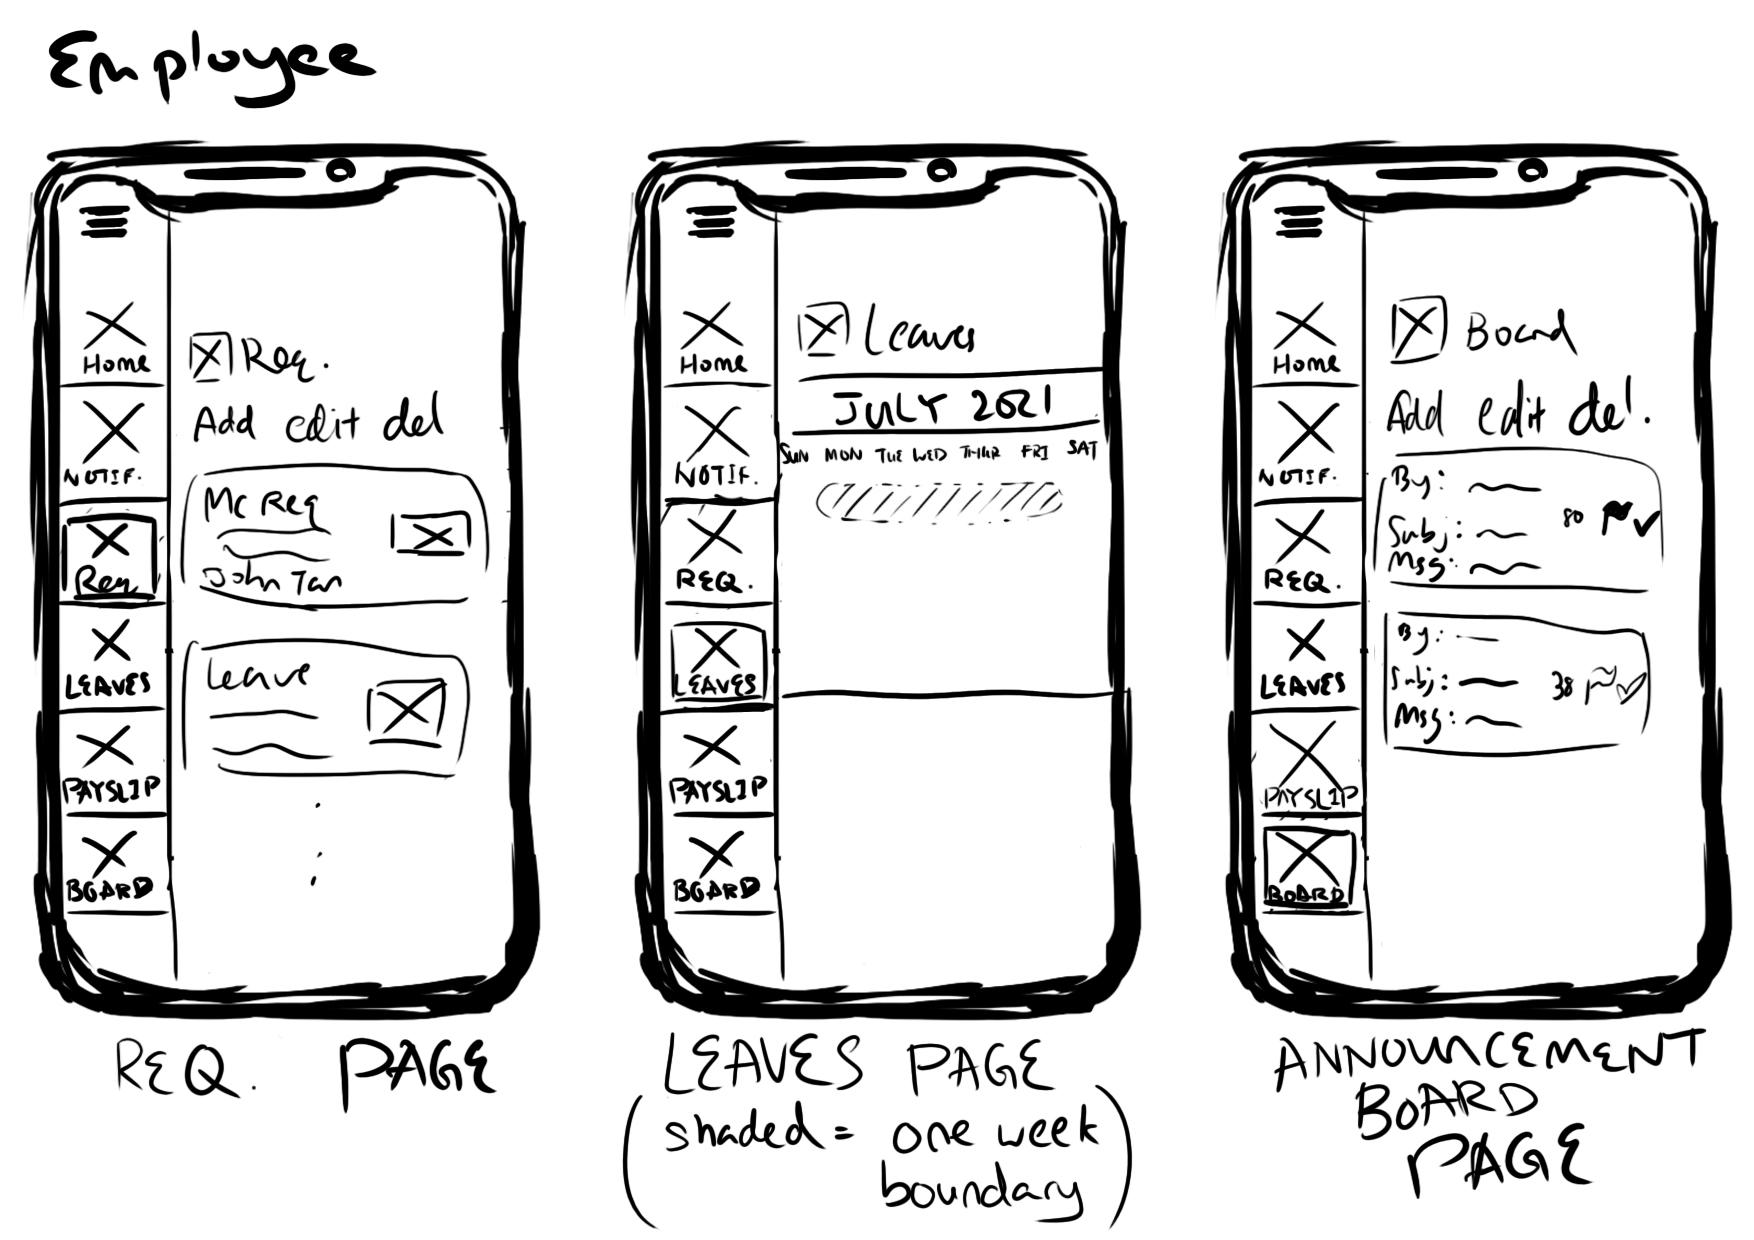 Employee
Home
NOTIF.
Req
LEAVES
PAYSLIP
BOARD
Req.
Add edit del
Mc Req
John Tan
Leave
REQ. PAGE
Home
NOTIF.
REQ.
LEAVES
PAYSLIP
BOARD
Leaves
JULY 2021
SUN MON TUE WED THUR FRI SAT
LEAVES PAGE
(shaded = one week
boundary)
Home
NOTIF.
REQ.
LEAVES
PAYSLIP
BOARD
Board
Add edit del.
By:
Subj:
80
Msg:
By:
Subj:
38
Msg:
ANNOUNCEMENT
BOARD
PAGE